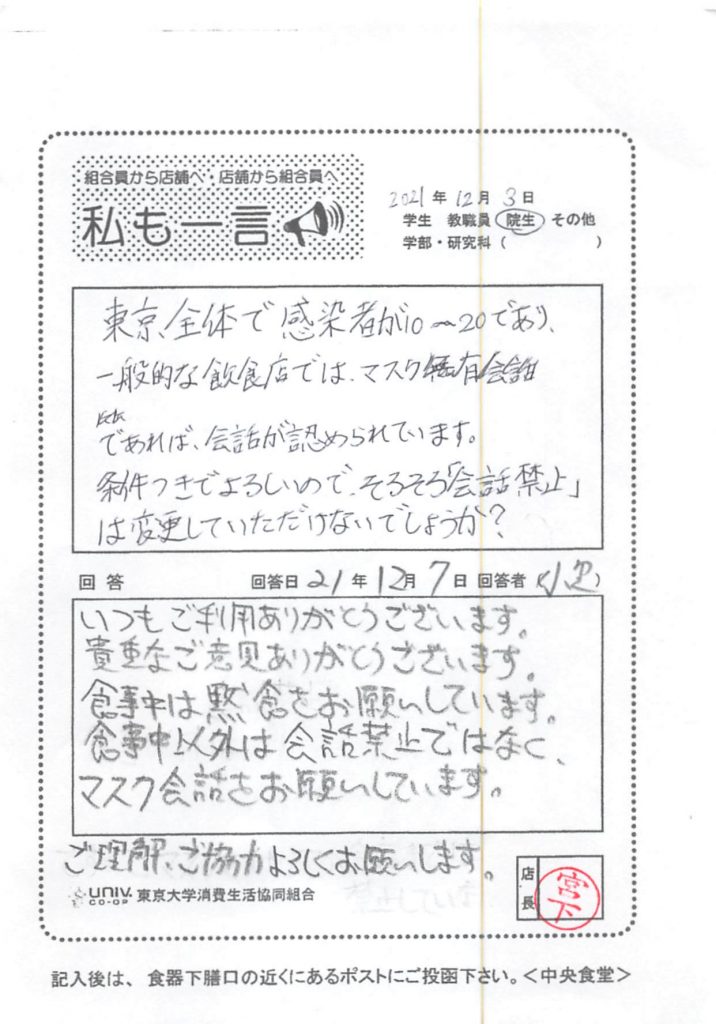 組合員から店舗へ・店舗から組合員へ
私も一言
2021年12月3日
学生 教職員 院生 その他
学部・研究科（ ）
東京全体で感染者が10～20であり、
一般的な飲食店では、マスク
であれば、会話が認められています。
条件つきでよろしいので、そろそろ「会話禁止」
は変更していただけないでしょうか？
回答 回答日21年12月7日 回答者（ ）
いつもご利用ありがとうございます。
貴重なご意見ありがとうございます。
食事中は黙食をお願いしています。
食事中以外は会話禁止ではなく、
マスク会話をお願いしています。
ご理解、ご協力よろしくお願いします。
店長
宮下
UNIV. CO-OP 東京大学消費生活協同組合
記入後は、食器下膳口の近くにあるポストにご投函下さい。＜中央食堂＞